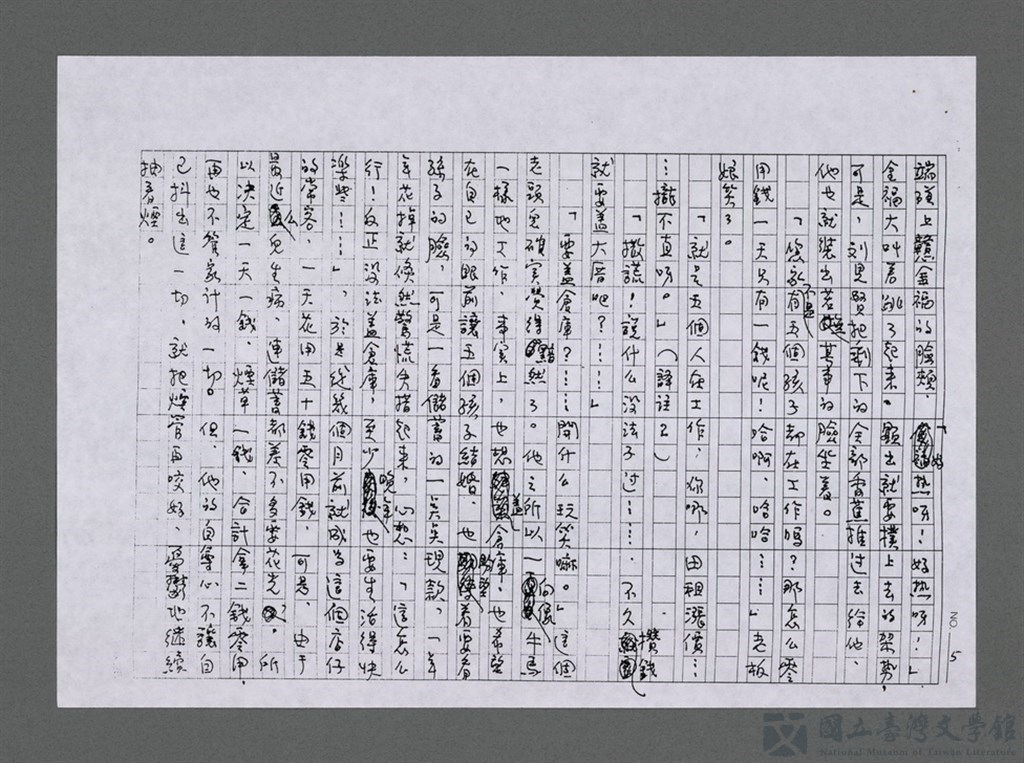 端孫上贛金福的臉頰.「好热呀!好热呀!」
金福大叫著跳了起来。顯出就要撲上去的架勢,
可是,刘見賢把剩下的全部香蕉推过去給他.
他也就裝出若無其事的臉坐著。
「您不是有五個孩子都在工作嗎?那怎么零
用錢一天只有一錢呢!哈啊,哈哈……」老板
娘笑了。
「就是五個人在工作,你哪,田租漲價…
…攏不直呀。」(譯註2)
「撒謊!說什么没法子过……不久攢錢
就要蓋大厝吧?……」
「要蓋倉庫?……開什么玩笑嘛。」這個
老頭兒確實覺得黯然了。他之所以一向像牛馬
一樣地工作,事實上,也想蓋倉庫,也希望
在自己的眼前讓五個孩子結婚、也盼望着要看
孫子的臉,可是一看儲蓄的一点点現款,一年
年花掉就倏然驚慌失措起来,心想:「這怎么
行!反正没法蓋倉庫,至少晚年也要生活得快
樂些……」,於是從幾個月前就成為這個店仔
的常客,一天花用五十錢零用錢,可是,由于
最近么兒生病,連儲蓄都差不多要花光,所
以決定一天一錢,煙草一錢,合計拿二錢零用.
再也不管家計的一切。但,他的自尊心不讓自
己抖出這一切,就把煙管再咬好,憂鬱地継続
抽着煙。
20—5
國立臺灣文學館
National Museum of Taiwan Literature